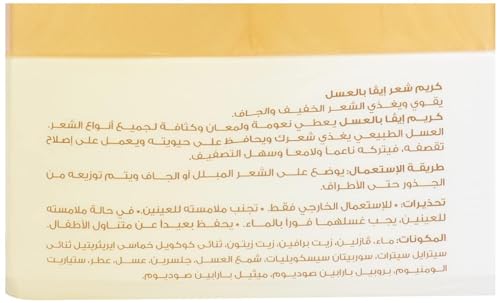 كريم شعر إيڤا بالعسل
يقوي ويغذي الشعر الخفيف والجاف.
كريم إيڤا بالعسل يعطي نعومة ولمعان وكثافة لجميع أنواع الشعر.
العسل الطبيعي يغذي شعرك ويحافظ على حيويته ويعمل على إصلاح
تقصفه، فيتركه ناعماً ولامعاً وسهل التصفيف.
طريقة الإستعمال: يوضع على الشعر المبلل أو الجاف ويتم توزيعه من
الجذور حتى الأطراف.
تحذيرات: • للإستعمال الخارجي فقط. • تجنب ملامسته للعينين. • في حالة ملامسته
للعينين، يجب غسلهما فوراً بالماء. • يحفظ بعيداً عن متناول الأطفال.
المكونات: ماء، ڤازلين، زيت برافين، زيت زيتون، ثنائى كوكويل خماسى ايريثريتيل ثنائى
ستيرايل سيترات، سوربيتان سيسكويليات، شمع العسل، جلسرين، عسل، عطر، ستياريت
الومنيوم، بروبيل بارابين صوديوم، ميثيل بارابين صوديوم.